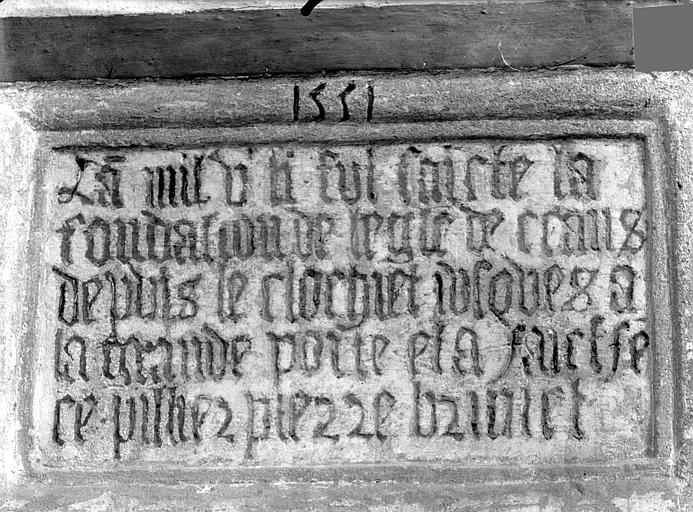 1551
La mil vc li fut faicte la
fondation de legle de ceans
depuis le clorhiet iusques a
la grande porte et a faict fe
re pilhez pierre brunet